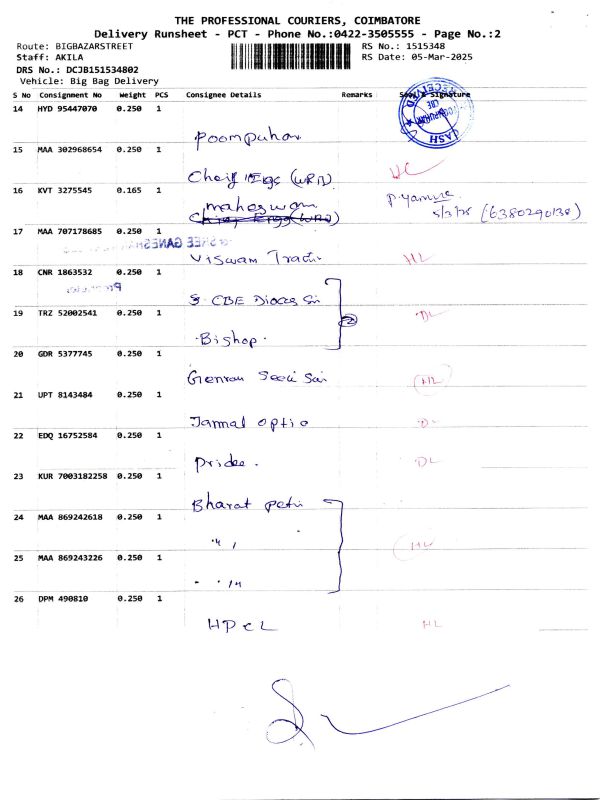 THE PROFESSIONAL COURIERS, COIMBATORE
Delivery Runsheet - PCT - Phone No.:0422-3505555 - Page No.:2
Route: BIGBAZARSTREET RS No.: 1515348
Staff: AKILA RS Date: 05-Mar-2025
DRS No.: DCJB151534802
Vehicle: Big Bag Delivery
S No Consignment No Weight PCS Consignee Details Remarks Seal & Signature
14 HYD 95447070 0.250 1
Poompuhar
15 MAA 302968654 0.250 1
Cheif Eggs (WRD)
16 KVT 3275545 0.165 1
maheswari
P. Yamune
5/3/25 (6380290138)
17 MAA 707178685 0.250 1
SREE GANESH
Viswam Tradi HL
18 CNR 1863532 0.250 1
CBE Dioces
19 TRZ 52002541 0.250 1 DL
Bishop.
20 GDR 5377745 0.250 1
HL
21 UPT 8143484 0.250 1
Jammal optio DL
22 EDQ 16752584 0.250 1
Pridee. DL
23 KUR 7003182258 0.250 1
Bharat petri
24 MAA 869242618 0.250 1
25 MAA 869243226 0.250 1
26 DPM 490810 0.250 1
HPCL HL